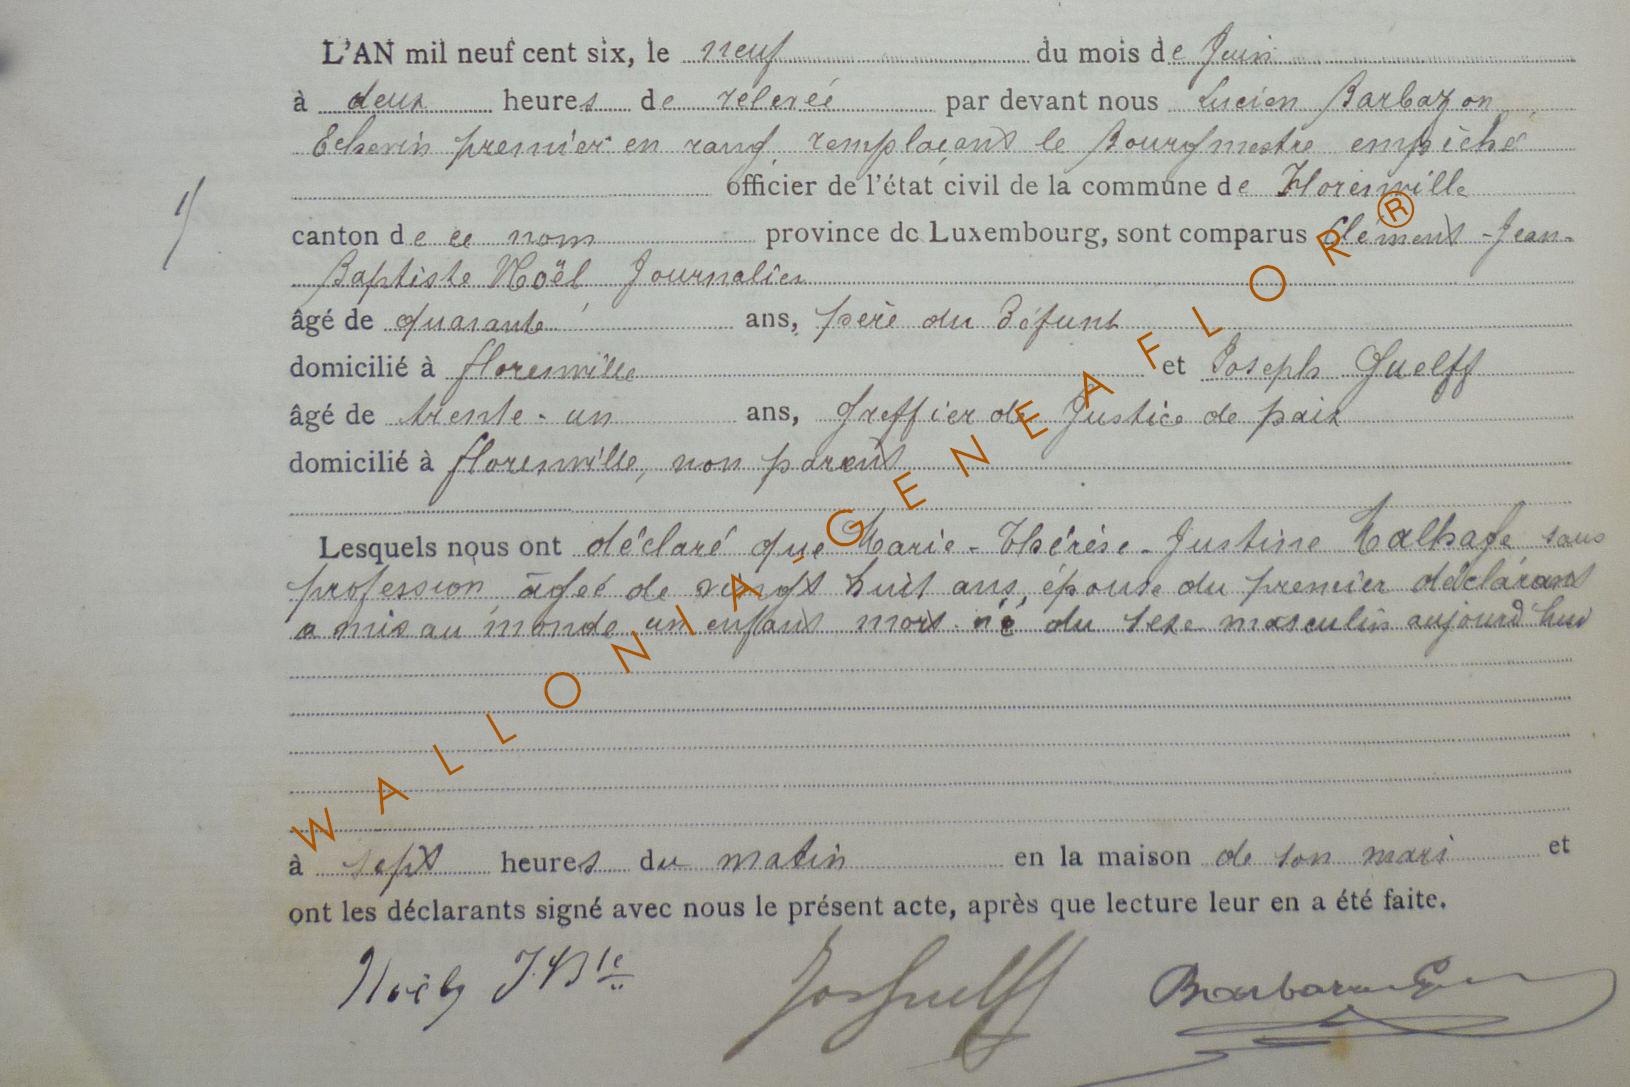 L'AN mil neuf cent six, le neuf du mois de Juin
à deux heures de relevée par devant nous Lucien Barbazon
Echevin premier en rang, remplaçant le Bourgmestre empêché
officier de l'état civil de la commune de Florenville
canton de ce nom province de Luxembourg, sont comparus Clément-Jean-
Baptiste Noël Journalier
âgé de quarante ans, père du Défunt
domicilié à florenville et Joseph Guelff
âgé de trente-un ans, Greffier de Justice de paix
domicilié à florenville, non parent
Lesquels nous ont déclaré que Marie-Thérèse-Justine sans
profession âgée de vingt huit ans, épouse du premier déclarant
a mis au monde un enfant mort-né du sexe masculin aujourd'hui
à sept heures du matin en la maison de son mari et
ont les déclarants signé avec nous le présent acte, après que lecture leur en a été faite.
Noël J.Bte Jos Guelff Barbazon
WALLONIA-GENEAFLOR®